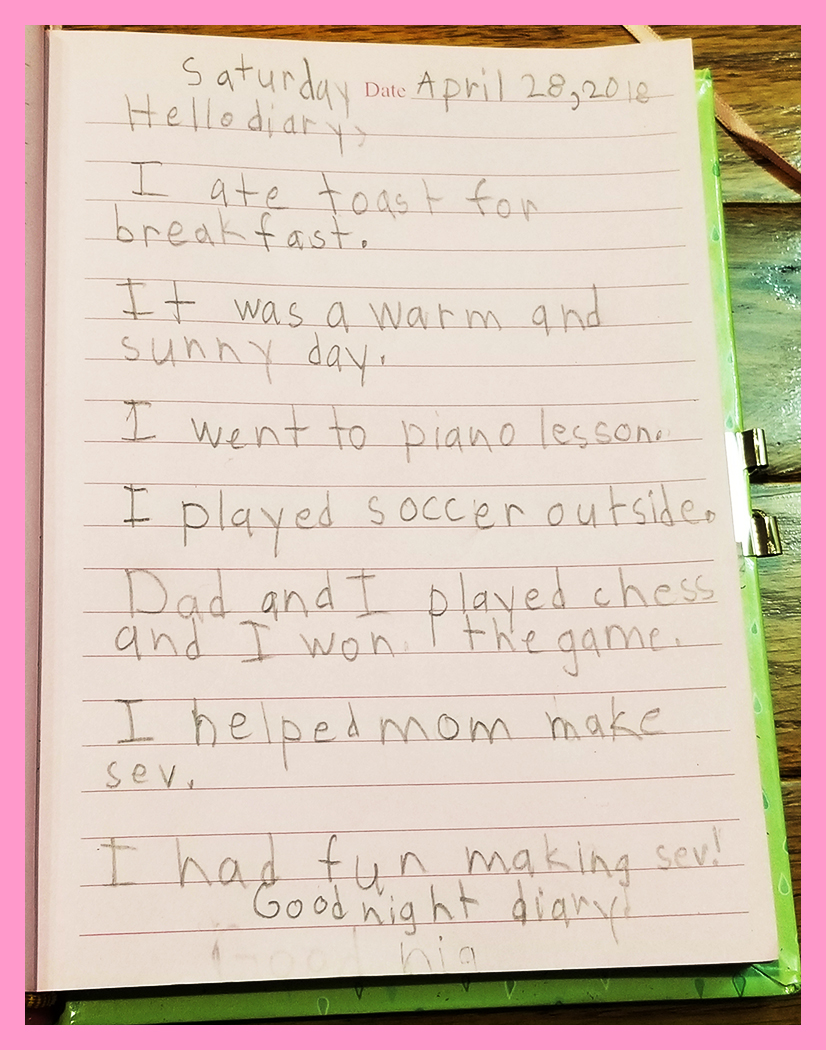 Saturday Date April 28,2018
Hello diary,
I ate toast for
breakfast.
It was a warm and
sunny day.
I went to piano lesson.
I played soccer outside.
Dad and I played chess
and I won the game.
I helped mom make
sev.
I had fun making sev!
Good night diary!
Good nig